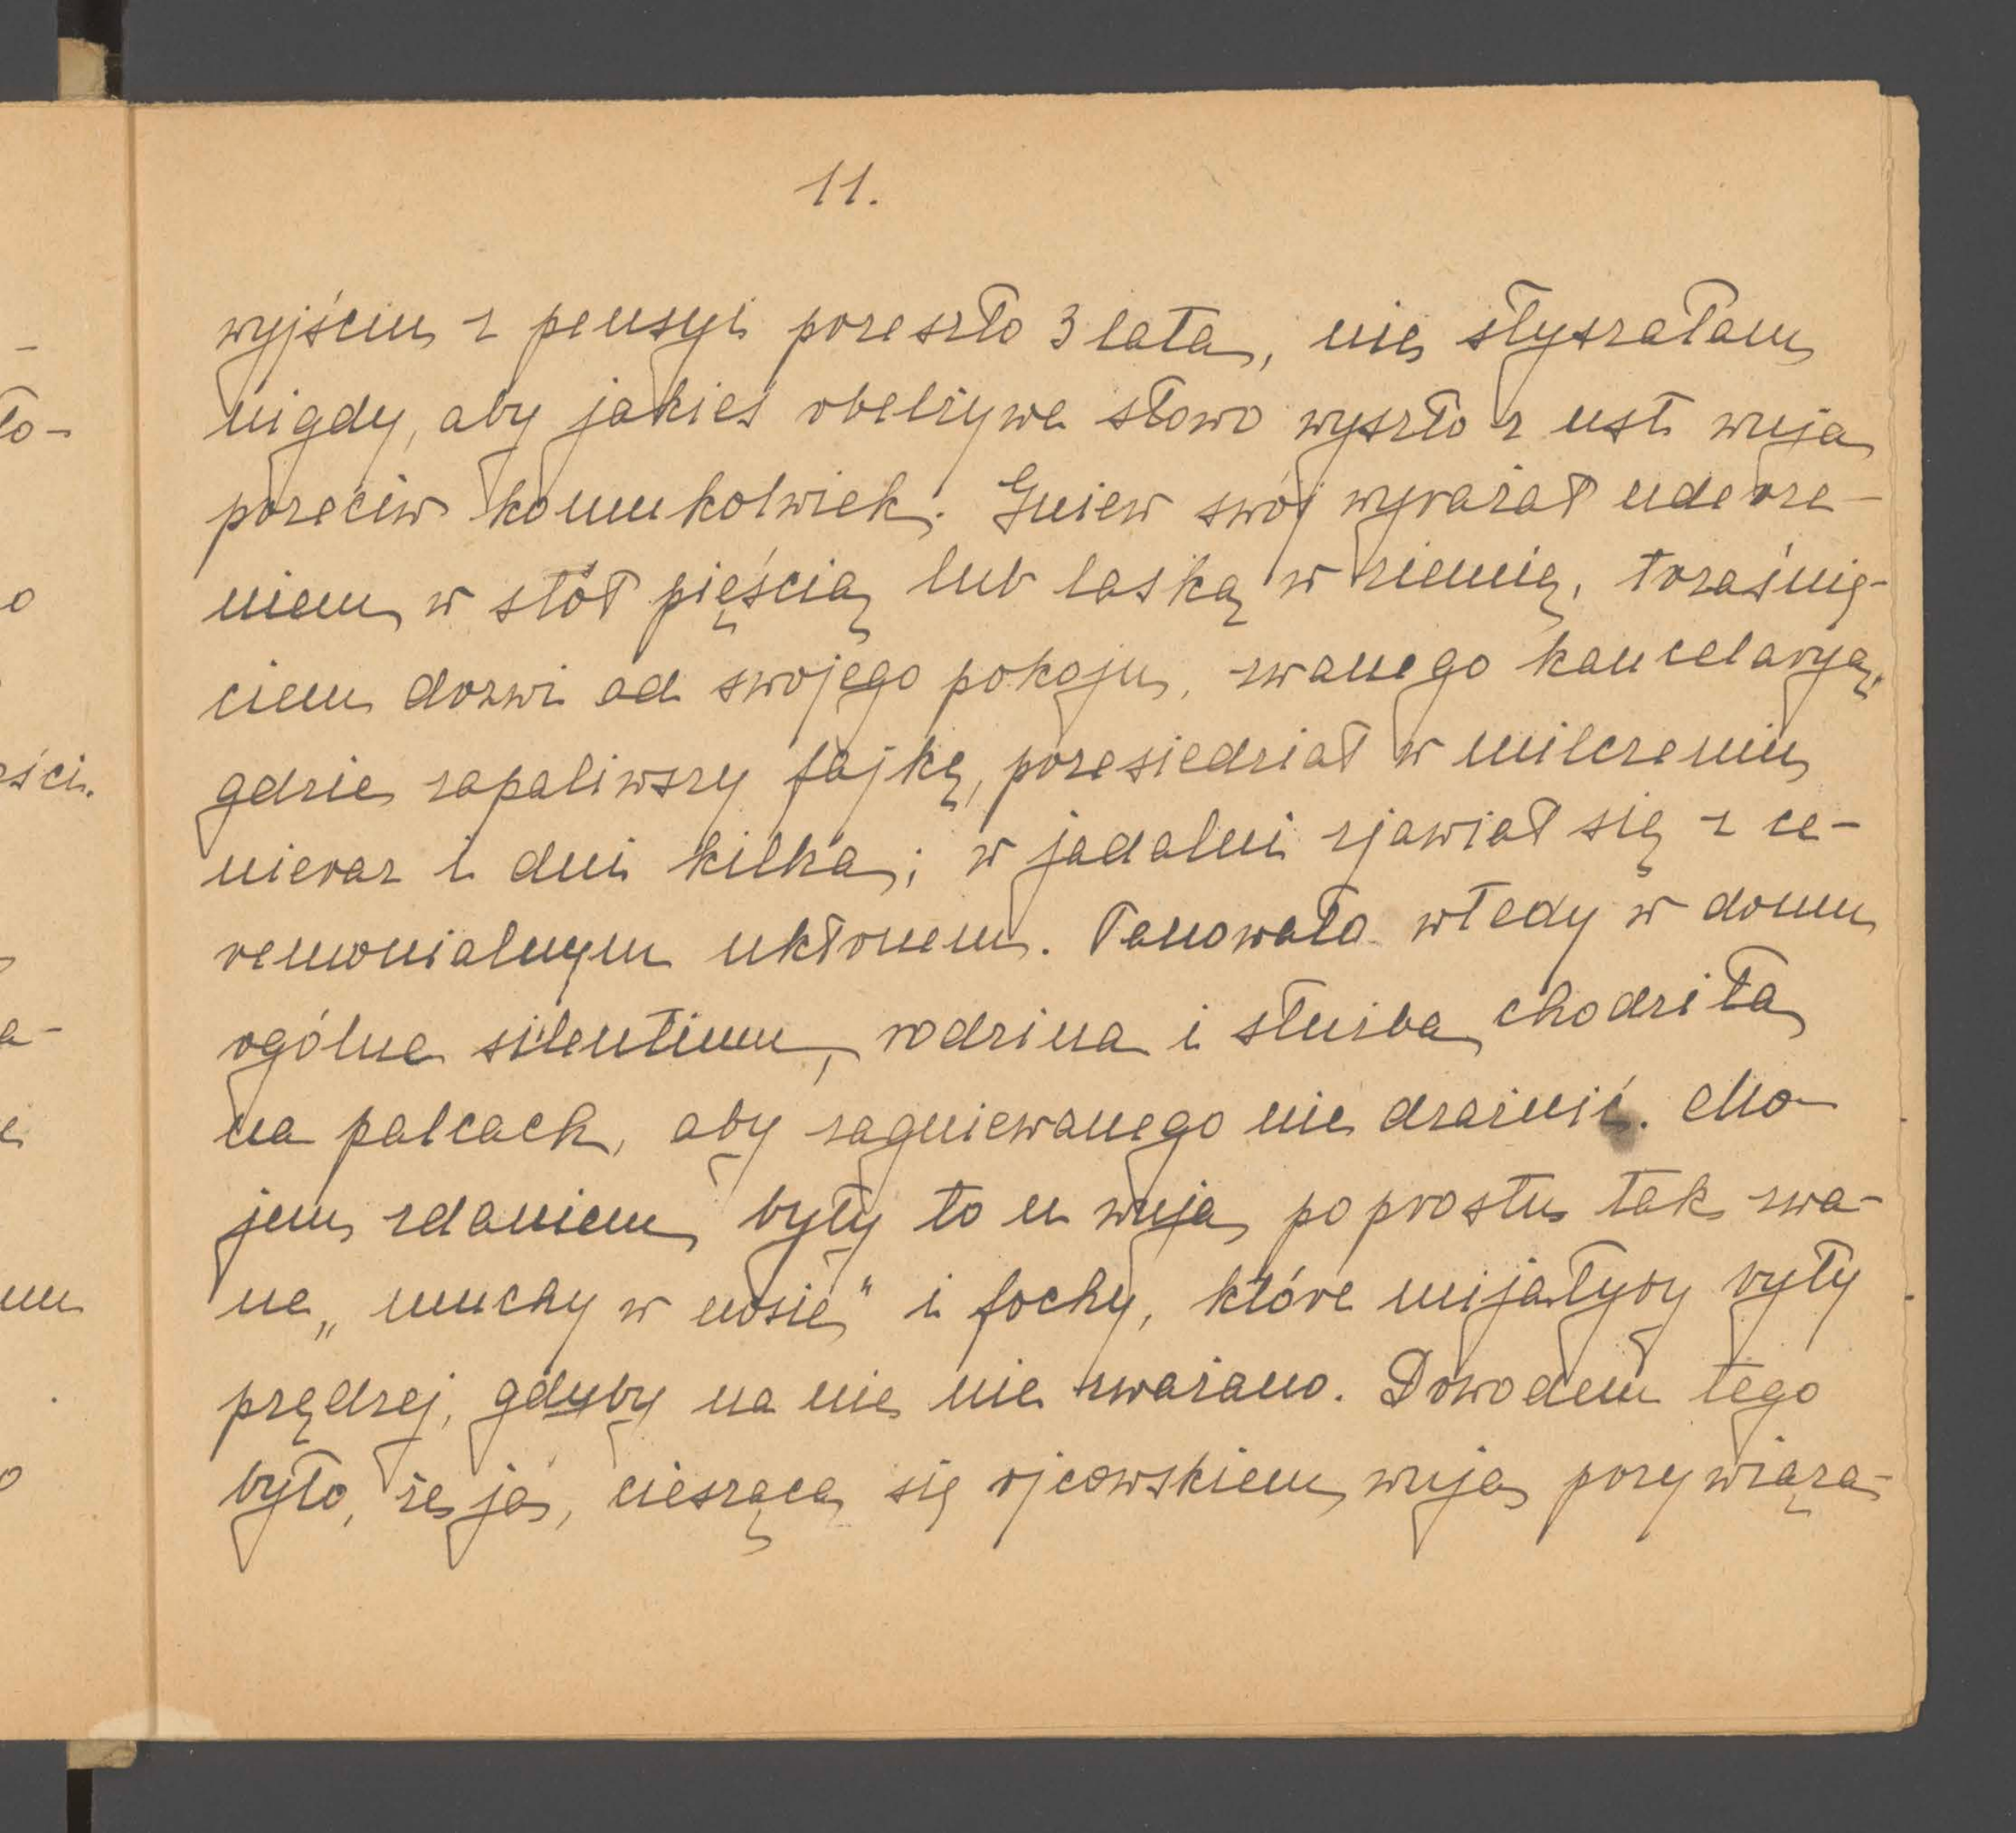 11.
wyjściu z pensyi przeszło 3 lata, nie słyszałam
nigdy, aby jakieś obelżywe słowo wyszło z ust wuja
przeciw komukolwiek. Gniew swój wyrażał uderze-
niem w stół pięścią lub laską w ziemię, trzaśnię-
ciem drzwi od swojego pokoju, zwanego kancelaryą,
gdzie zapaliwszy fajkę, przesiedział w milczeniu
nieraz i dni kilka; w jadalni zjawiał się z ce-
remonialnym ukłonem. Panowało wtedy w domu
ogólne silentium, rodzina i służba chodziła
na palcach, aby zagniewanego nie drażnić. Mo-
jem zdaniem były to u wuja poprostu tak zwa-
ne „muchy w nosie" i fochy, które mijałyby były
prędzej, gdyby na nie nie zważano. Dowodem tego
było, że ja, ciesząca się ojcowskiem wuja przywiąza-